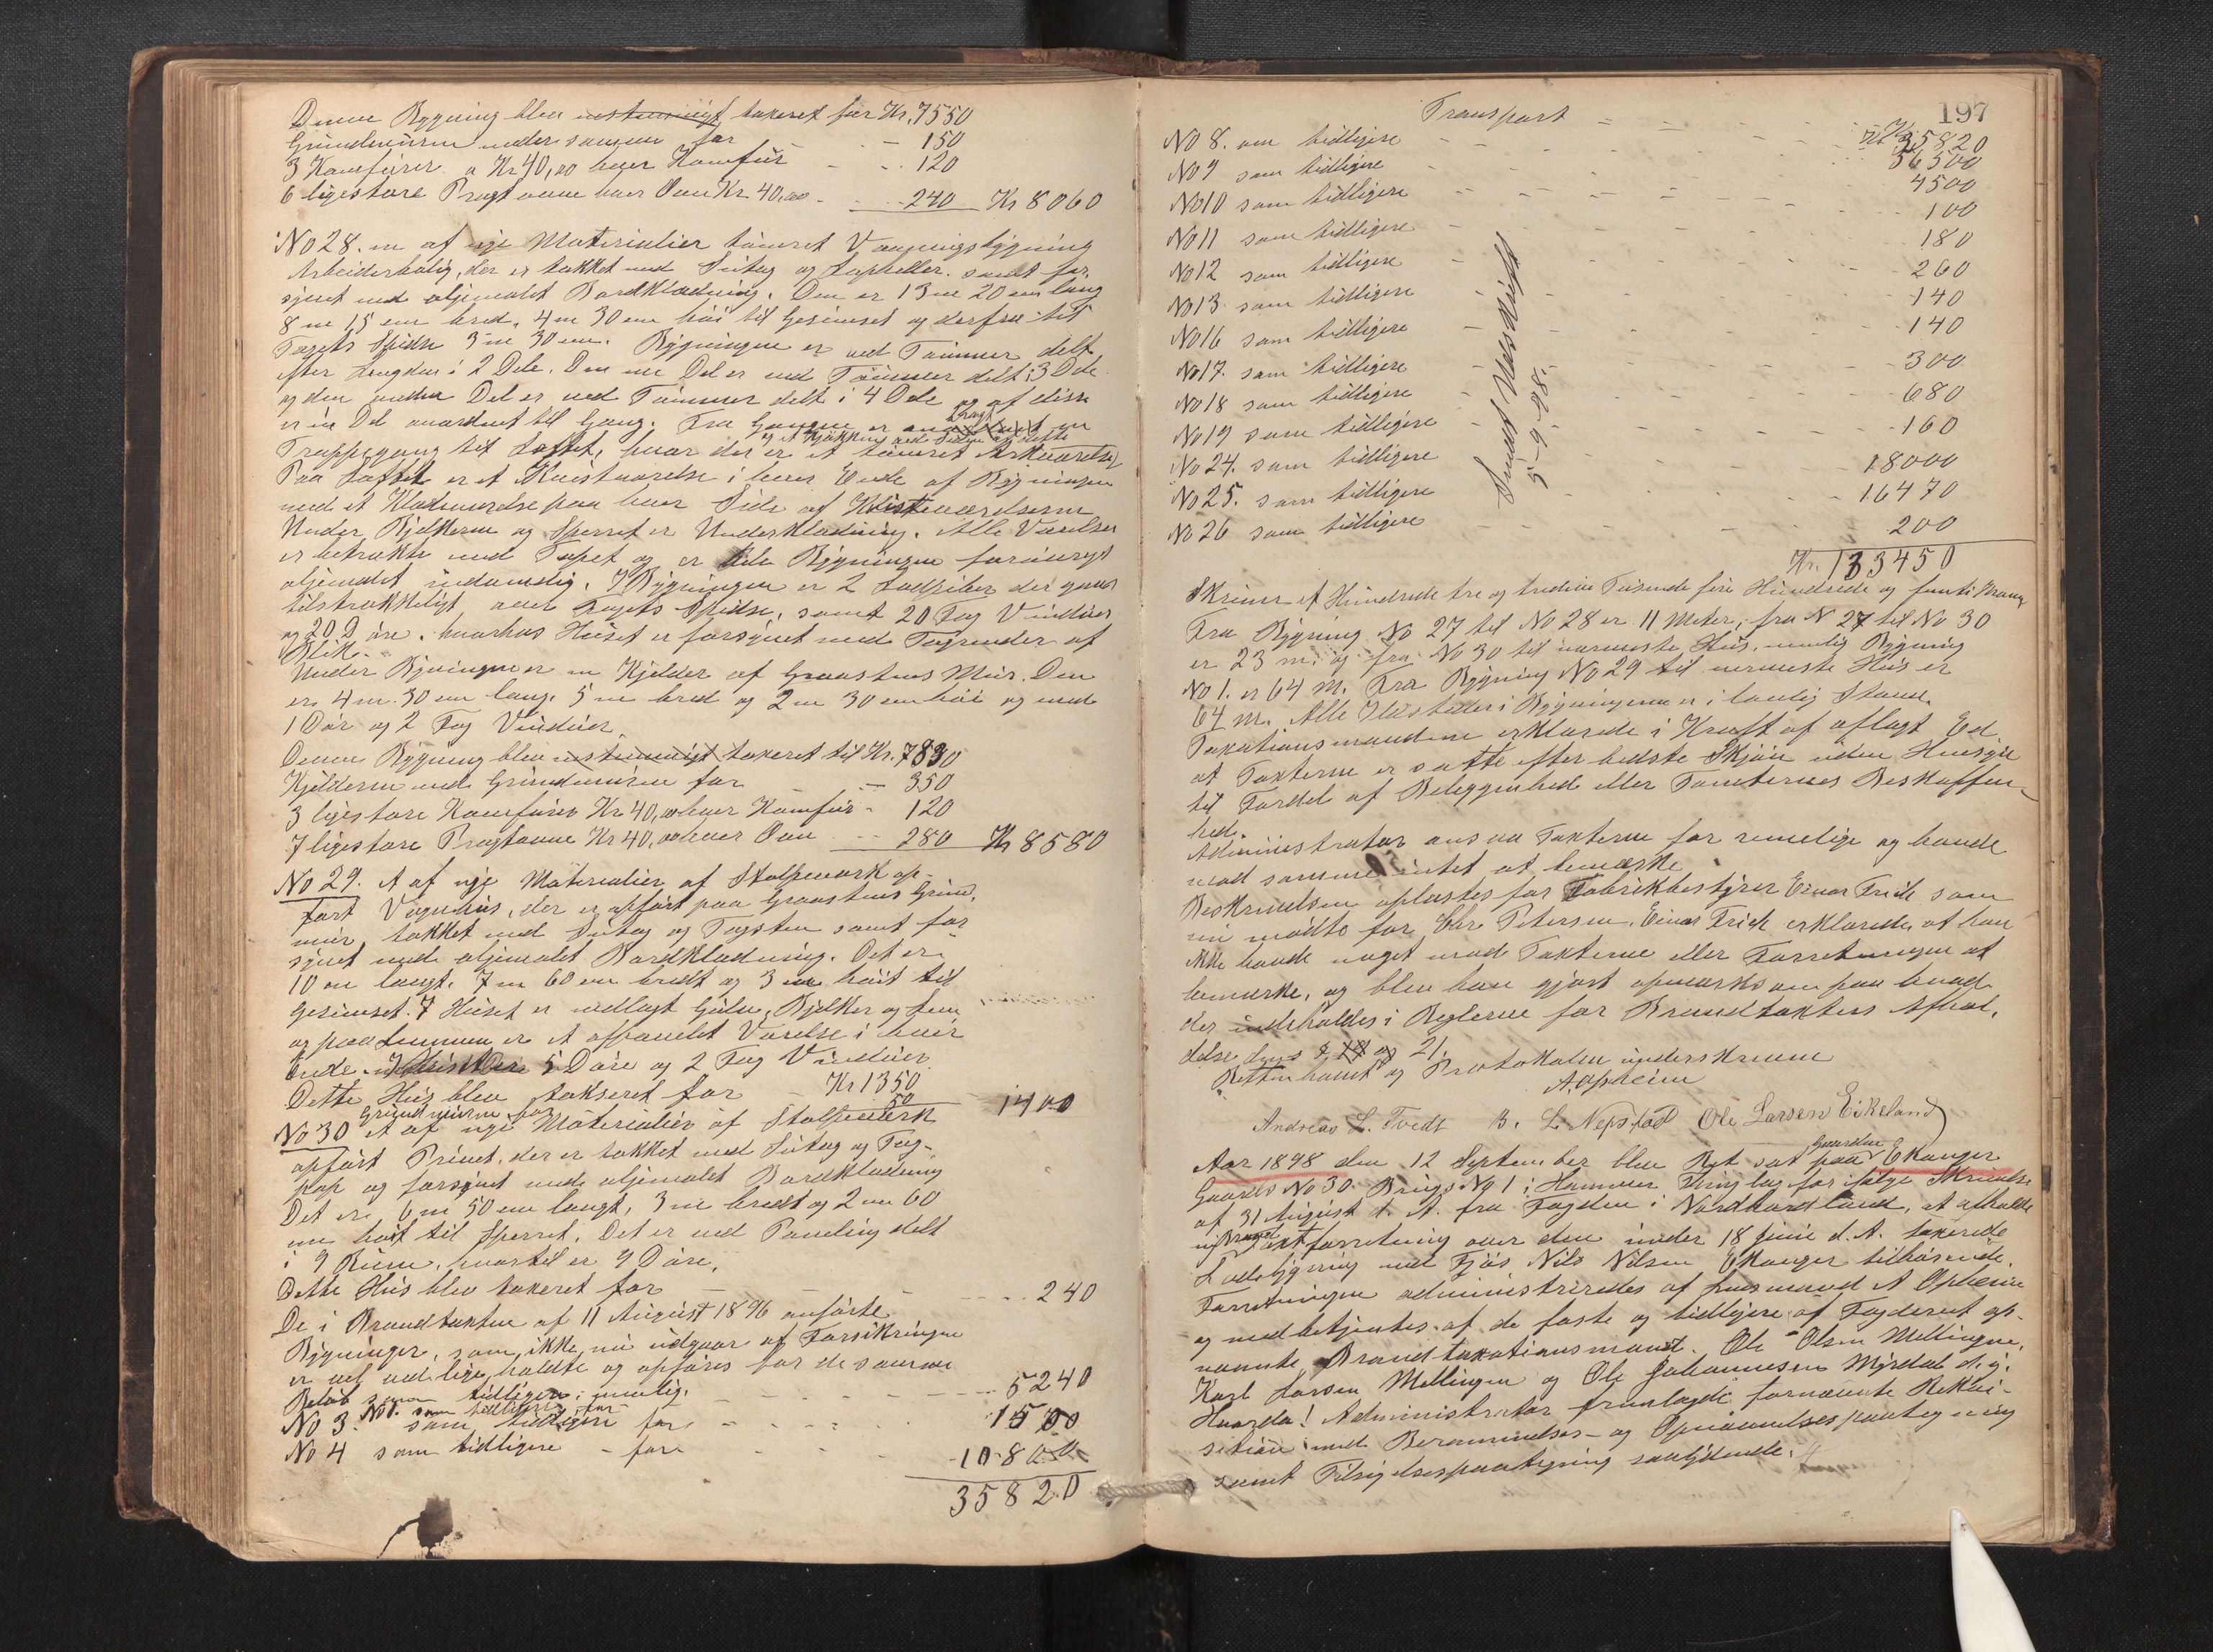 Denne Bygning blev eenstemmigt taxeret for Kr. 7550
Grundmuren under samme for - - 150
3 Komfurer a Kr 40,00 hver Komfür - - 120
6 ligestore Pragtovne hver Ovn Kr. 40,00 - - 240 Kr 8060
No 28. en af nye Materialier tömret Vaaningsbygning
Arbeiderbolig, der er tækket med Sutag og Lapheller. samt for-
synet med oljemalet Bordklædning. Den er 13 m 20 cm lang
8 m 15 cm bred, 4 m 30 cm höi til Gesimset og derfra til
Tagets Spidse 3 m 30 cm. Bygningen er ved Tömmer delt
efter Længden i 2 Dele. Den ene Del er ved Tömmer delt i 3 Dele
og den anden Del er ved Tömmer delt i 4 Dele og af disse
er en Del anordnet til Gang. Fra Gangen er en
og et Kjökken ved Siden af dette
Trappegang til Loftet, hvor der er et tömret Arkværelse
Paa Loftet er et Kvistværelse i hver Ende af Bygningen
med et Klædeværelse paa hver Side af Kvistværelserne
Under Bjelkerne og Sperret er Underklædning. Alle Værelser
er betrukke med Tapet og er hele Bygningen forövrigt
oljemalet indvendig. I Bygningen er 2 Ladpiber der gaar
tilstrækkeligt over Tagets Spidse, samt 20 Fag Vinduer
og 20 Döre. hvorhos Huset er forsynet med Tagrender af
Blik.
Under Bygningen er en Kjelder af Graastens Mur. Den
er 4 m. 30 cm lang. 5 m bred og 2 m 30 cm höi og med
1 Dör og 2 Fag Vinduer.
Denne Bygning blev eenstemmigt taxeret til Kr. 7830
Kjelderen med Grundmuren for - - 350
3 ligestore Komfurer Kr 40,00 hver Komfur - 120
7 ligestore Pragtovne Kr 40,00 hver Ovn - - 280 Kr 8580
No 29. Et af nye Materialier af Stolpeverk op-
fört Vognhus, der er opfört paa Graastens Grund-
mur, tækket med Sutag og Tagsten samt for-
synet med oljemalet Bordklædning. Det er
10 m langt, 7 m 60 cm bredt og 3 m höit til
Gesimset. I Huset er nedlagt Gulv, Bjelker og Lem
og paa Lemmen er et afpanelet Værelse i hver
Ende. 5 Döre og 2 Fag Vinduer
Dette Hus blev takseret for Kr 1350
Grundmuren for 50 - 1400
No 30 Et af nye Materialier af Stolpeverk
opfört Privet, der er tækket med Sutag og Tag-
pap og forsynet med oljemalet Bordklædning
Det er 6 m 50 cm langt, 3 m bredt og 2 m 60
cm höit til Sperret. Det er ved Paneling delt
i 9 Rum, hvortil er 9 Döre.
Dette Hus blev taxeret for - - - 240
De i Brandtakten af 11 August 1896 anförte
Bygninger, som ikke nu udgaar af Forsikringen
er vel vedligeholdte og opföres for de samme
Beløb som tidligere, nemlig.
No 1. som tidligere for - - - 5240
No 3. som tidligere for - - - 1500
No 4 som tidligere - for - - 10800
35820
197
Transport - - - Kr 35820
No 8. som tidligere - - - 36500
No 9 som tidligere - - - 4500
No 10 som tidligere - - - 100
No 11 som tidligere - - - 180
No 12 som tidligere - - - 260
No 13. som tidligere - - - 140
No 16 som tidligere - - - 140
No 17. som tidligere - - - 300
No 18 som tidligere - - - 680
No 19 som tidligere - - - 160
No 24. som tidligere - - - 18000
No 25. som tidligere - - - 16470
No 26 som tidligere - - - 200
Kr. 133450
Sendt Udskrift
5-9-98.
Skriver et Hundrede tre og tredive Tusende fire Hundrede og femti Kroner
Fra Bygning No 27 til No 28 er 11 Meter, fra N 27 til No 30
er 23 m. og fra No 30 til nærmeste Hus, nemlig Bygning
No 1. er 64 m. Fra Bygning No 29 til nermeste Hus er
64 m. Alle Ildsteder i Bygningerne er i lovlig Stand.
Taxationsmændene erklærede i Kraft af aflagt Ed
at Taxterne er satte efter bedste Skjön uden Hensyn
til Fordel af Beleggenhed eller Tomternes Beskaffen-
hed.
Administrator ansaa Taxterne for rimelige og havde
mod samme intet at bemærke
Beskrivelsen oplæstes for Fabrikbestyrer Einar Frich som
nu mödte for Chr Petersen. Einar Frich erklærede, at han
ikke havde noget mod Taxterne eller Forretningen at
bemærke, og blev han gjort opmærksom paa hvad
der indeholdes i Reglerne for Brandtakters Afhol-
delse dens § 14 og 21.
Retten hævet og Protokolen underskreven
A Opheim
Andreas L. Tvedt B. L. Nepstad Ole Larsen Eikeland
Aar 1898 den 12 September blev Ret sat paa Gaarden Ekanger
Gaards No 30 Brugs No 1 i Hammer Thinglag for ifölge Skrivelse
af 31 August d. A. fra Fogden i Nordhordland, at afholde
ny Brandtaxtforretning over den under 18 Juni d. A. taxerede
Ladebygning med Fjös Nils Nilsen Ekanger tilhörende.
Forretningen administreredes af Lensmand A Opheim
og medbetjentes af de faste og tidligere af Fogderiet op-
nævnte Brandtaxationsmænd. Ole Olsen Mellingen,
Karl Larsen Mellingen og Ole Johannesen Myrdal d. y.
Hvorda! Administrator fremlagde fornævnte Rekvi-
sition med Berammelses- og Opnævnelsespaategning
samt Tilsigelsespaategning saalydende: